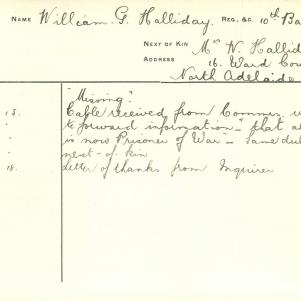 NAME William G. Halliday. REG. &C 10th Ba
NEXT OF KIN Mr W. Hallid
ADDRESS 16. Ward
North Adelaide
"Missing".
18. Cable received from Commrs.
" to forward information "that
" is now Prisoner of War" - same
" next-of kin
18. Letter of thanks from Inquirer